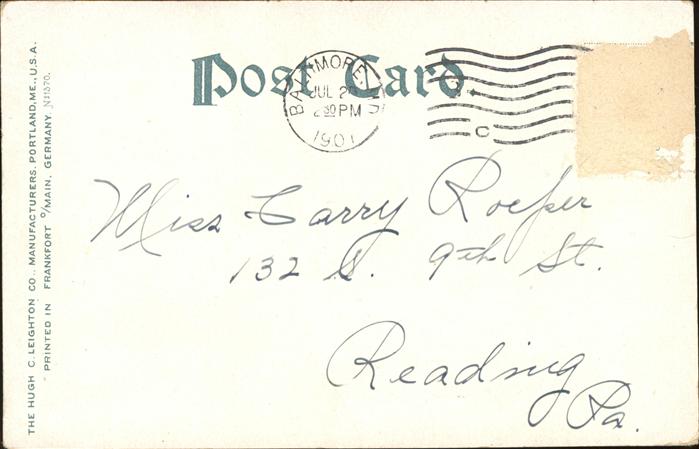 Post Card.
BALTIMORE, MD.
JUL 2
2 30 PM
1901
C
Miss Carry Roeper
132 S. 9th St.
Reading
Pa.
THE HUGH C. LEIGHTON CO., MANUFACTURERS, PORTLAND, ME., U.S.A.
PRINTED IN FRANKFORT o/MAIN, GERMANY.